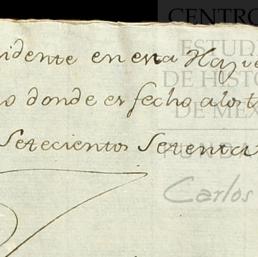 CENTRO
ESTUDI
DE HISTO
DE MÉX
Carlos
sidente en esta Haz
o donde es fecho a los t
Setecientos Setenta